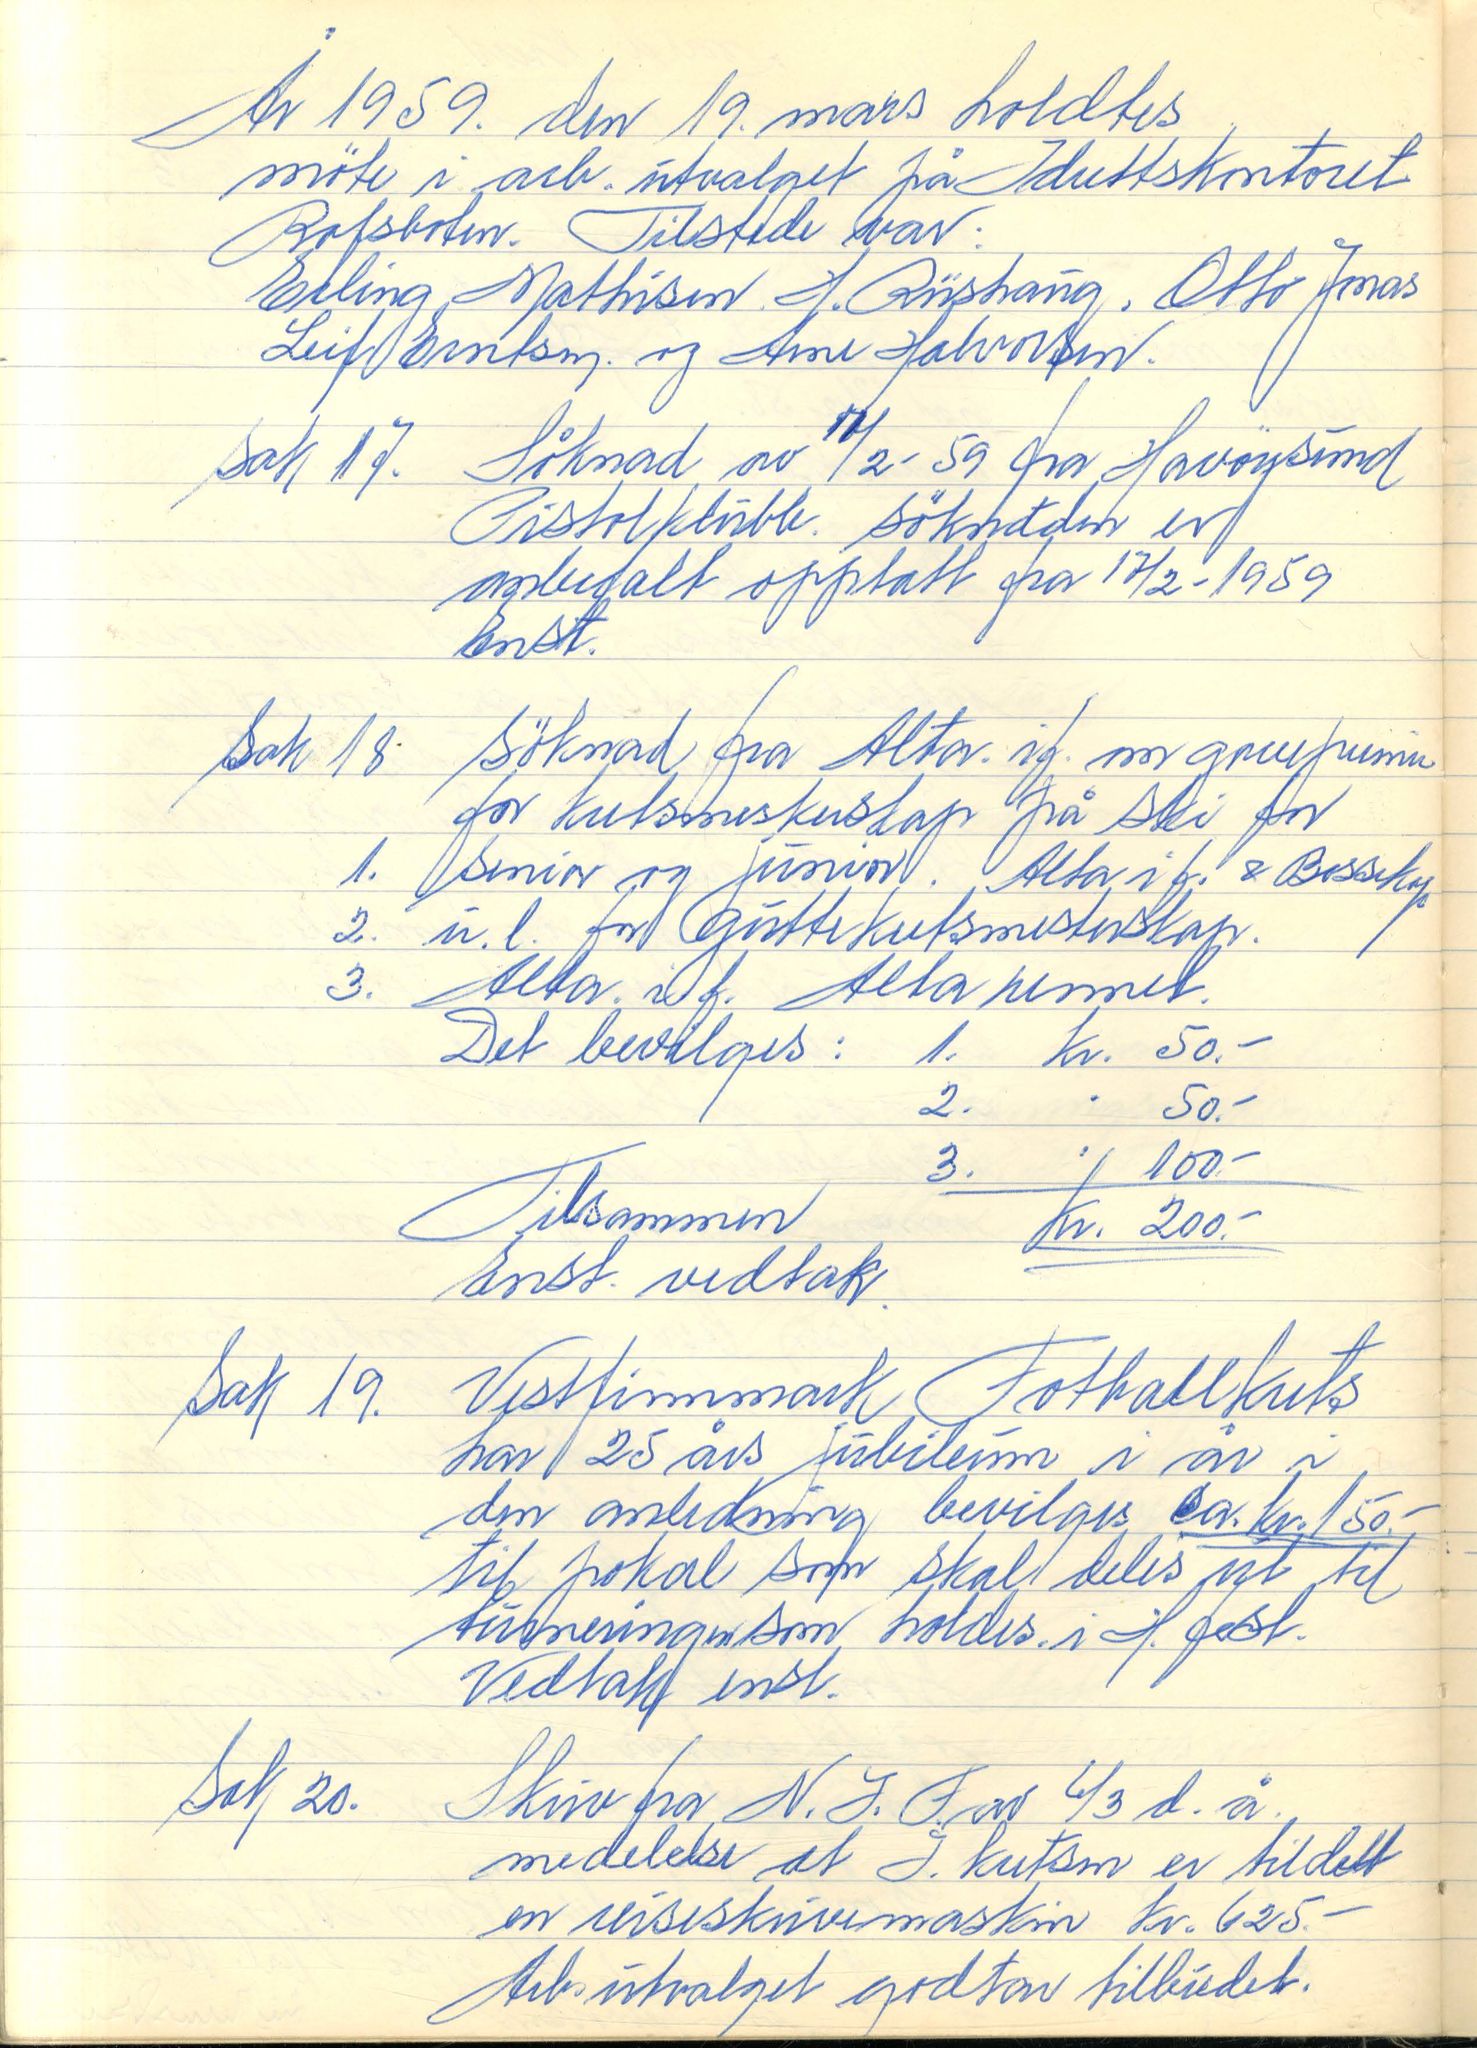 År 1959. den 19. mars holdtes
möte i arb. utvalget på Idrettskontoret
Rafsboten. Tilstede var:
Erling Mathisen H. Riishaug, Otto Jonas
Leif Erntsen. og Arne Halvorsen.
Sak 17. Söknad av 17/2-59 fra Havöysund
Pistolklubb. Söknaden er
anbefalt opptatt fra 17/2-1959
Enst.
Sak 18 Söknad fra Alta. if. om
for kretsmesterskap på ski for
1. senior og junior. Alta i f. & Bossekop
2. u.l. for Guttekretsmesterskap.
3. Alta. i f. Alta rennet.
Det bevilges: 1. kr. 50.-
2. " 50.-
3. " 100.-
Tilsammen kr. 200.-
Enst. vedtak.
Sak 19. Vestfinnmark Fotballkrets
har 25 års jubileum i år i
den anledning bevilges ca. kr. 150.-
til pokal som skal deles ut til
turneringen som holdes i H. fest.
Vedtak enst.
Sak 20. Skriv fra N. I. F. av 6/3 d. å.
medelelse at I. kretsen er tildelt
en reiseskrivemaskin kr. 625.-
Arb. utvalget godtar tilbudet.